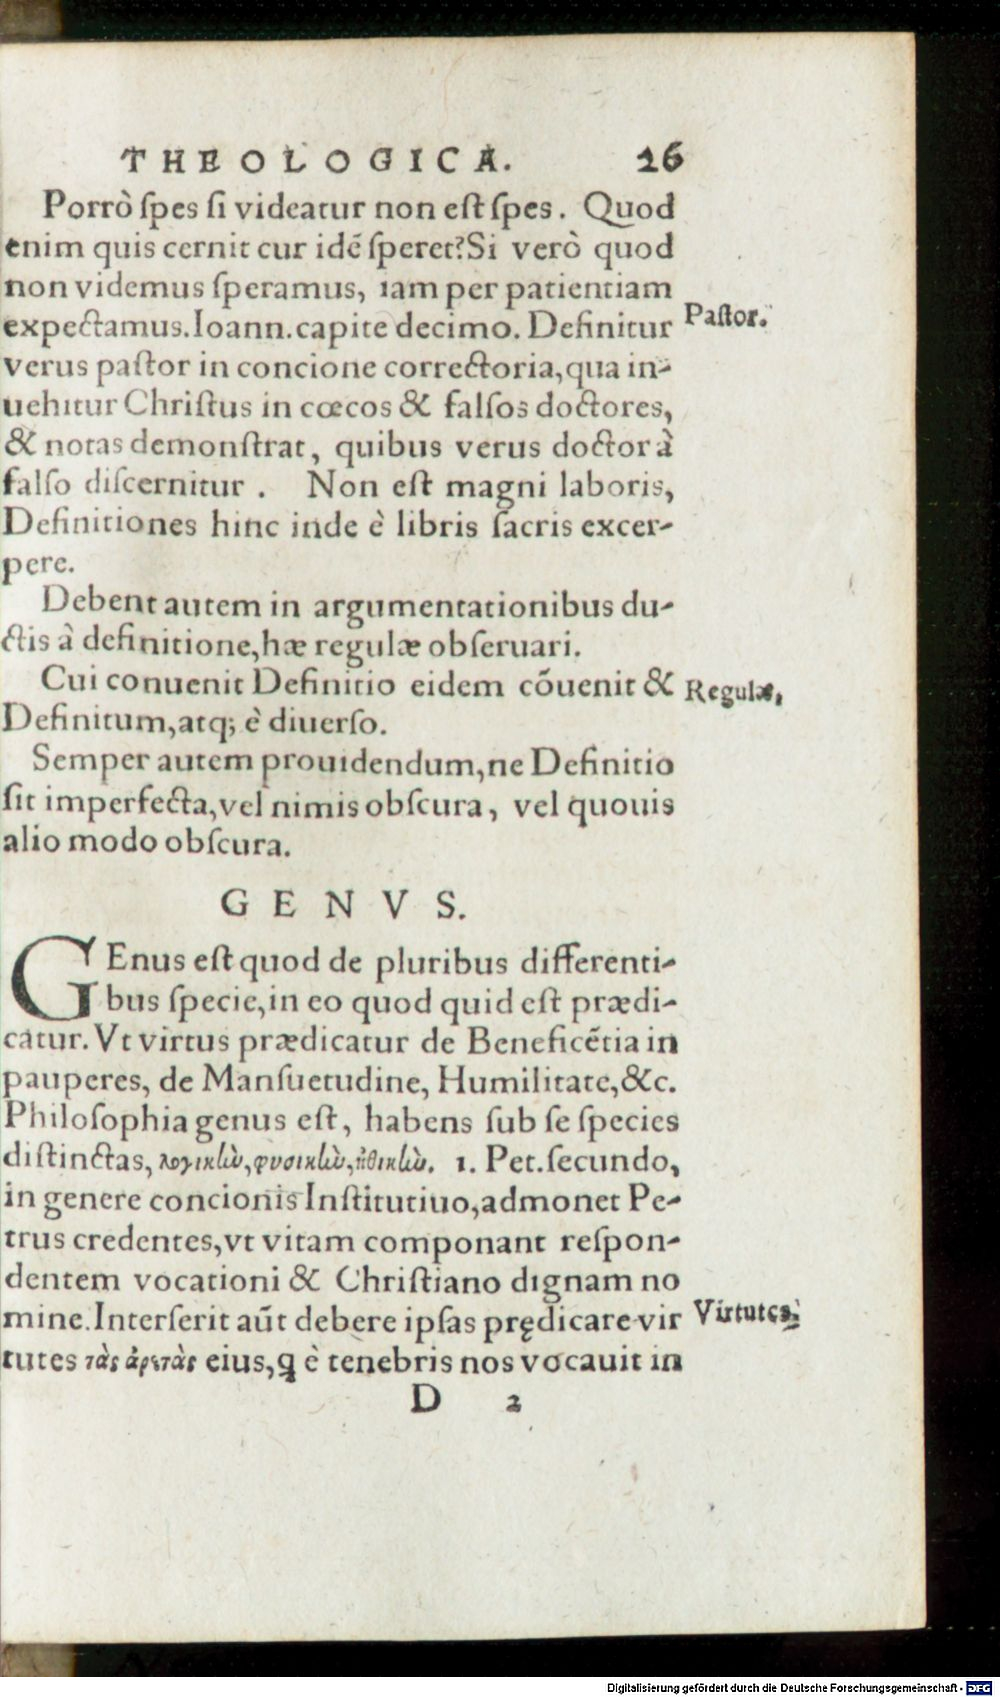 THEOLOGICA. 26
Porrò ſpes ſi videatur non eſt ſpes. Quod
enim quis cernit cur idē ſperet?Si verò quod
non videmus ſperamus, iam per patientiam
expectamus.Ioann.capite decimo. Definitur
Pastor.
verus paſtor in concione correctoria,qua in-
uehitur Chriſtus in cœcos & falſos doctores,
& notas demonſtrat, quibus verus doctor à
falſo diſcernitur. Non eſt magni laboris,
Definitiones hinc inde è libris ſacris excer-
pere.
Debent autem in argumentationibus du-
ctis à definitione,hæ regulæ obſeruari.
Cui conuenit Definitio eidem cōuenit &
Regulæ,
Definitum,atq; è diuerſo.
Semper autem prouidendum,ne Definitio
ſit imperfecta,vel nimis obſcura, vel quouis
alio modo obſcura.
GENVS.
GEnus eſt quod de pluribus differenti-
bus ſpecie,in eo quod quid eſt prædi-
catur. Vt virtus prædicatur de Beneficētia in
pauperes, de Manſuetudine, Humilitate,&c.
Philoſophia genus eſt, habens ſub ſe ſpecies
diſtinctas, λογικὼ, φυσικὼ, ἠθικὼ. 1. Pet.ſecundo,
in genere concionis Inſtitutiuo,admonet Pe-
trus credentes,vt vitam componant reſpon-
dentem vocationi & Chriſtiano dignam no
mine.Interſerit aūt debere ipſas prędicare vir
Virtutes.
tutes τὰς ἀρετὰς eius,q è tenebris nos vocauit in
D 2
Digitalisierung gefördert durch die Deutsche Forschungsgemeinschaft - DFG